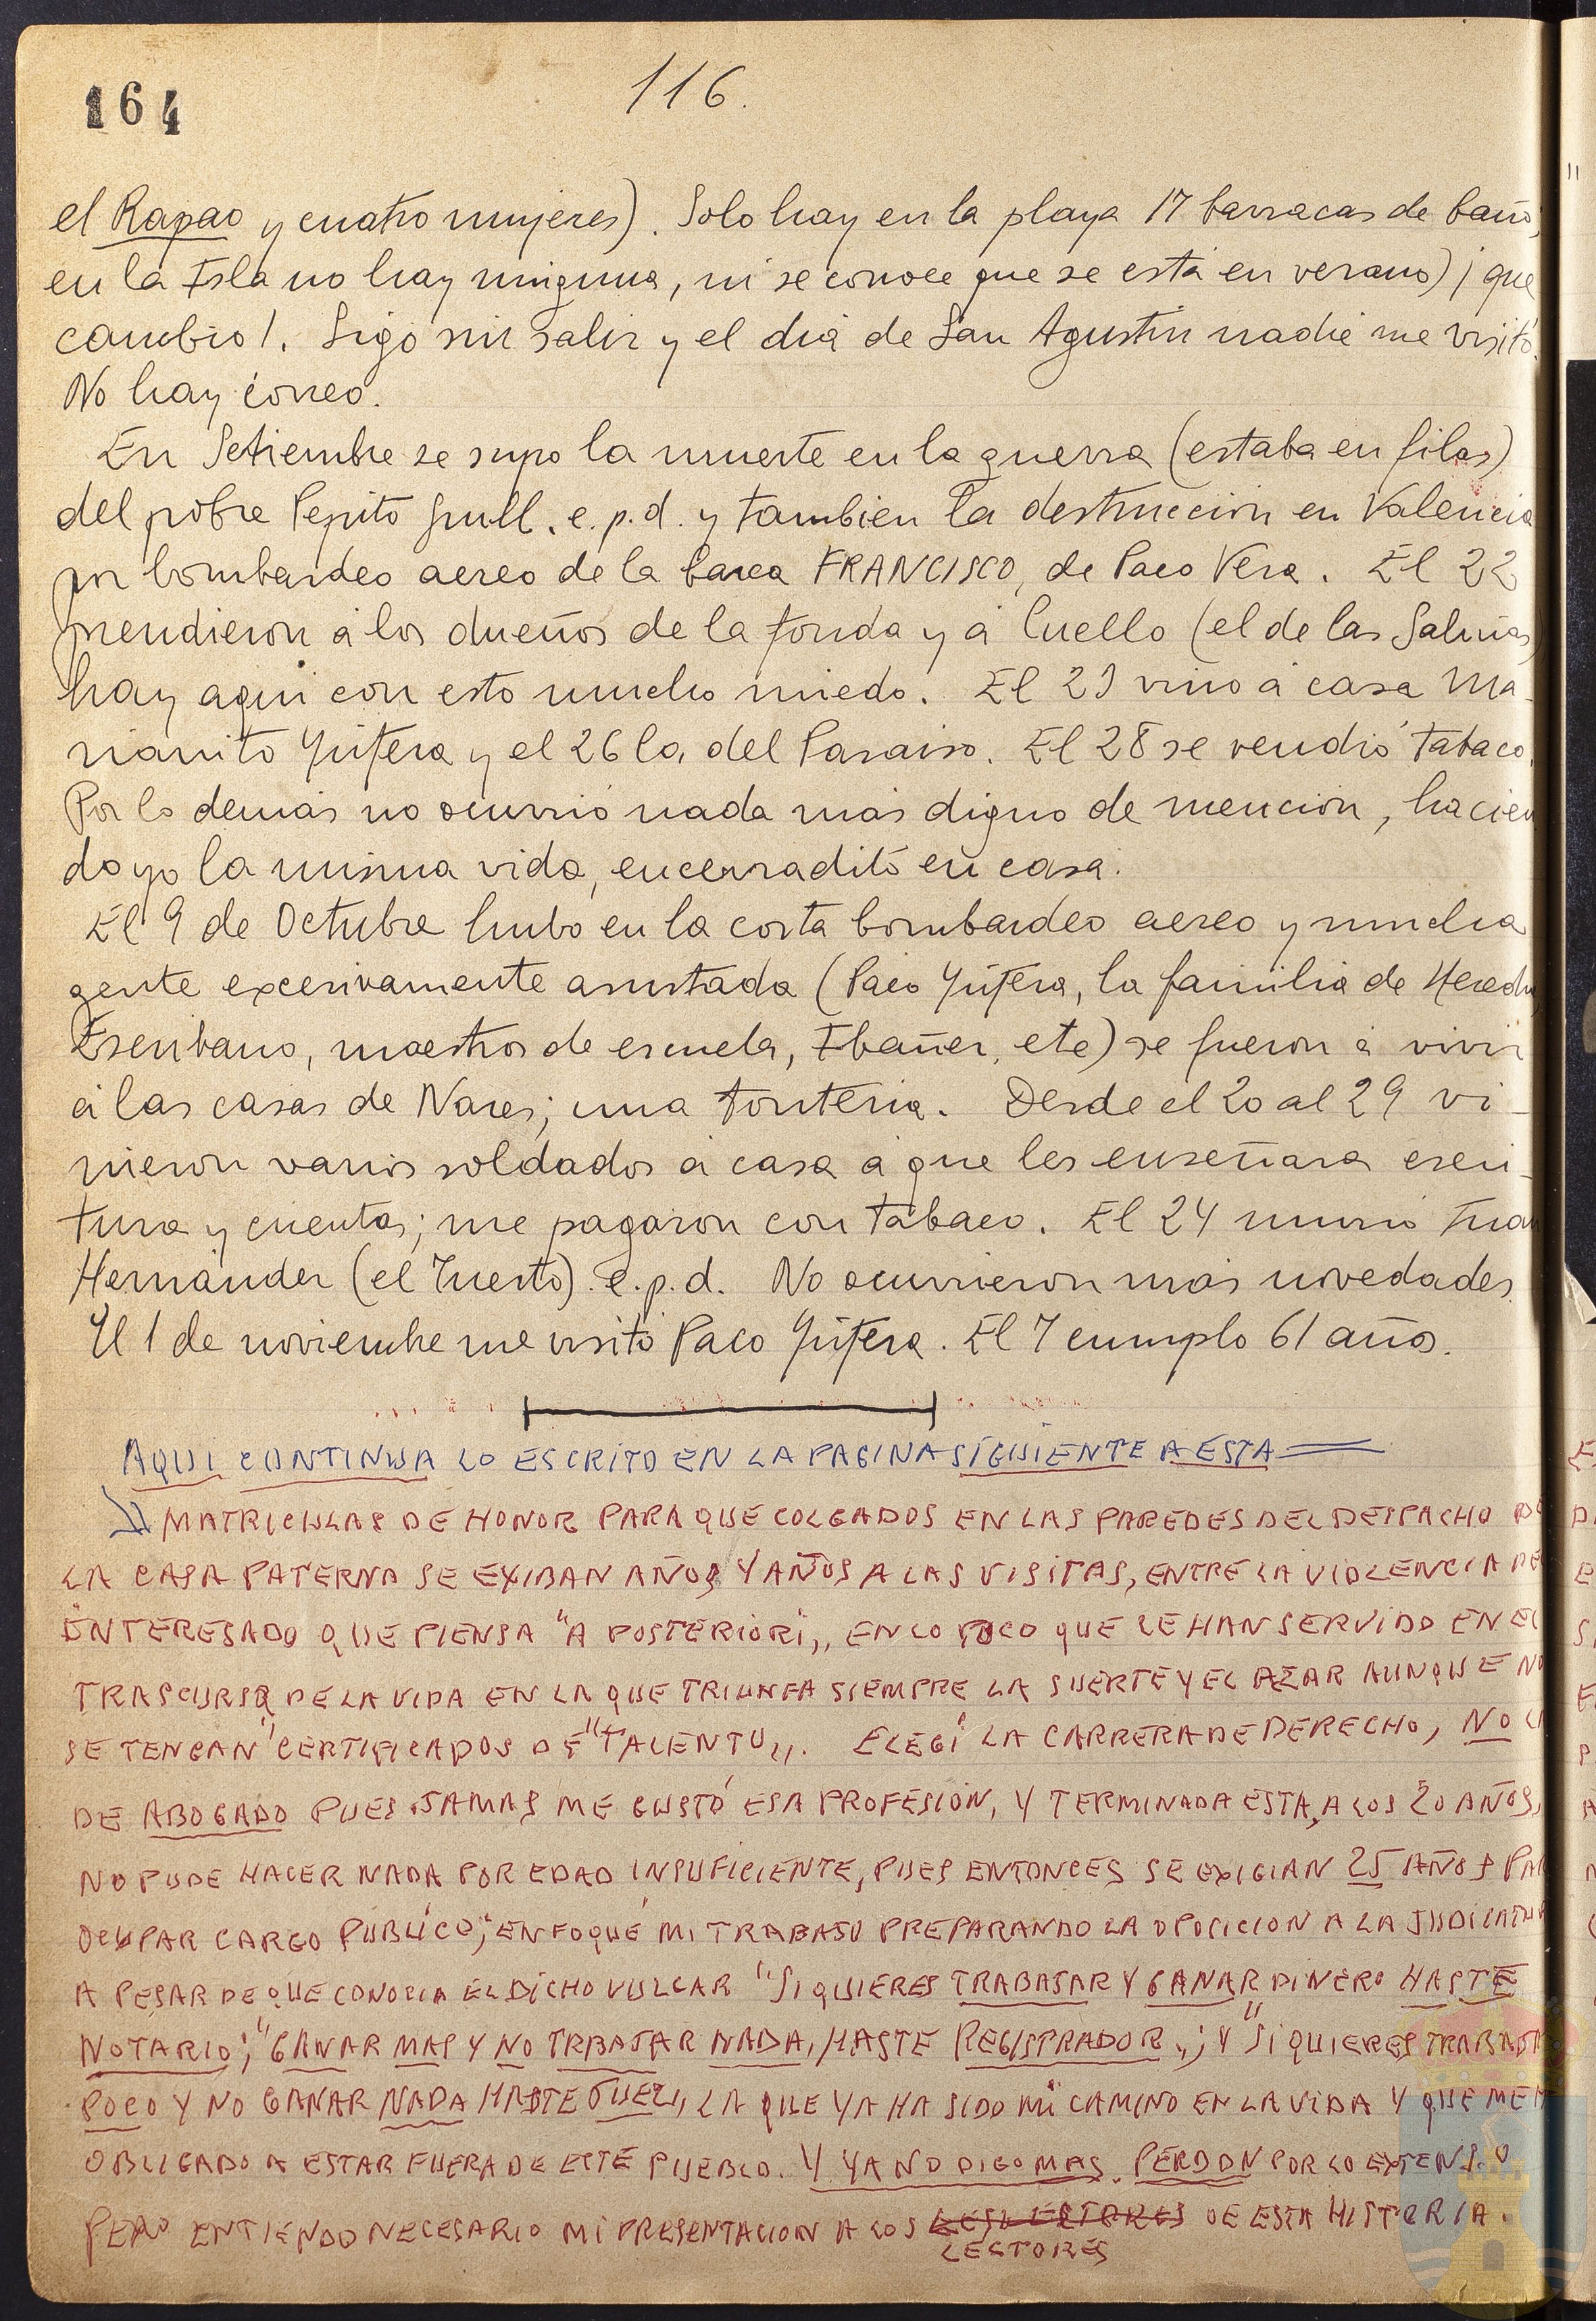 164
116.
el Rapao y cuatro mujeres). Solo hay en la playa 17 barracas de baño;
en la Isla no hay ninguna, ni se conoce que se está en verano) ¡que
cambio!. Sigo sin salir y el dia de San Agustin nadie me visitó.
No hay correo.
En Setiembre se supo la muerte en la guerra (estaba en filas)
del pobre Pepito Grull. e.p.d. y tambien la destruccion en Valencia
por bombardeo aereo de la barca FRANCISCO, de Paco Vera. El 22
prendieron á los dueños de la fonda y á Cuello (el de las Salinas)
hay aqui con esto mucho miedo. El 23 vino á casa Ma-
rianito Yúfera y el 26 la del Paraiso. El 28 se vendió tabaco.
Por lo demás no ocurrió nada más digno de mención, hacien
do yo la misma vida, encerradito en casa.
El 9 de Octubre hubo en la costa bombardeo aereo y mucha
gente excesivamente asustada (Paco Yúfera, la familia de
Escribano, maestros de escuela, Ibañez, etc) se fueron á vivir
á las casas de Nares; una tonteria. Desde el 20 al 29 vi-
nieron varios soldados á casa á que les enseñara escri-
tura y cuentas; me pagaron con tabaco. El 24 murió Juan
Hernández (el Tuerto). e.p.d. No ocurrieron más novedades
El 1 de noviembre me visitó Paco Yúfera. El 7 cumplo 61 años.
AQUI CONTINUA LO ESCRITO EN LA PAGINA SIGUIENTE A ESTA
MATRICULAS DE HONOR PARA QUE COLGADOS EN LAS PAREDES DEL DESPACHO DE
LA CASA PATERNA SE EXIBAN AÑOS Y AÑOS A LAS VISITAS, ENTRE LA VIOLENCIA DEL
INTERESADO QUE PIENSA "A POSTERIORI", EN LO POCO QUE LE HAN SERVIDO EN EL
TRASCURSO DE LA VIDA EN LA QUE TRIUNFA SIEMPRE LA SUERTE Y EL AZAR AUNQUE NO
SE TENGAN "CERTIFICADOS DE "TALENTO". ELEGI LA CARRERA DE DERECHO, NO LA
DE ABOGADO PUES JAMAS ME GUSTÓ ESA PROFESION, Y TERMINADA ESTA, A LOS 20 AÑOS,
NO PUDE HACER NADA POR EDAD INSUFICIENTE, PUES ENTONCES SE EXIGIAN 25 AÑOS PA
OCUPAR CARGO PUBLICO; ENFOQUÉ MI TRABAJO PREPARANDO LA OPOCICION A LA JUDICATUR
A PESAR DE QUE CONOCIA EL DICHO VULGAR "SI QUIERES TRABAJAR Y GANAR DINERO HASTE
NOTARIO; "GANAR MAS Y NO TRBAJAR NADA, HASTE REGISTRADOR"; Y "SI QUIERES TRABAJAR
POCO Y NO GANAR NADA HASTE JUEZ", LA QUE YA HA SIDO MI CAMINO EN LA VIDA Y QUE ME H
OBLIGADO A ESTAR FUERA DE ESTE PUEBLO. Y YA NO DIGO MAS. PERDON POR LO EXTENSO
PERO ENTIENDO NECESARIO MI PRESENTACION A LOS DE ESTA HISTORIA.
LECTORES